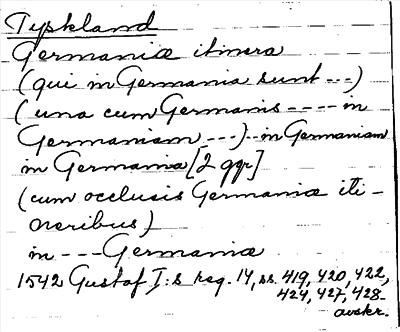 Tyskland
Germaniæ itinera
(qui in Germania sunt ---)
(una cum Germanis ---- in
Germaniam ---) -- in Germaniam
in Germania [2 ggr]
(cum occlusis Germaniæ iti-
neribus)
in --- Germania
1542 Gustaf I:s reg. 14, ss. 419, 420, 422,
424, 427, 428.
avskr.